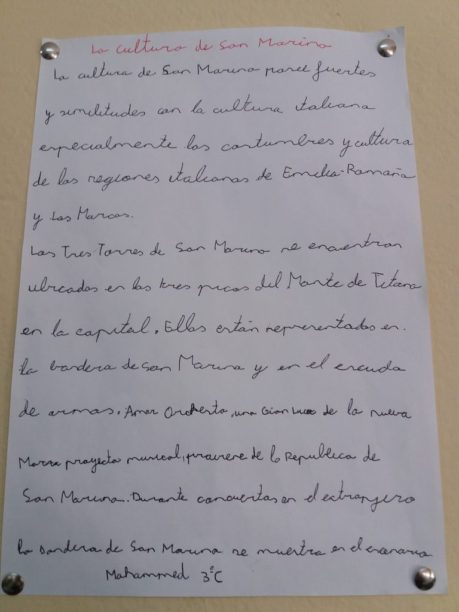 La cultura de San Marino
La cultura de San Marino posee fuertes
y similitudes con la cultura italiana
especialmente las costumbres y cultura
de las regiones italianas de Emilia-Romaña
y Las Marcas.
Las Tres Torres de San Marino se encuentran
ubicadas en los tres picos del Monte de Titano
en la capital. Ellas están representadas en
la bandera de San Marino y en el escudo
de armas. Amor Orchesta, una Gian de la nueva
proyecto musical, proviene de la Republica de
San Marino. Durante conciertos en el extranjero
la bandera de San Marino se muestra en el escenario
Mohammed 3ºC